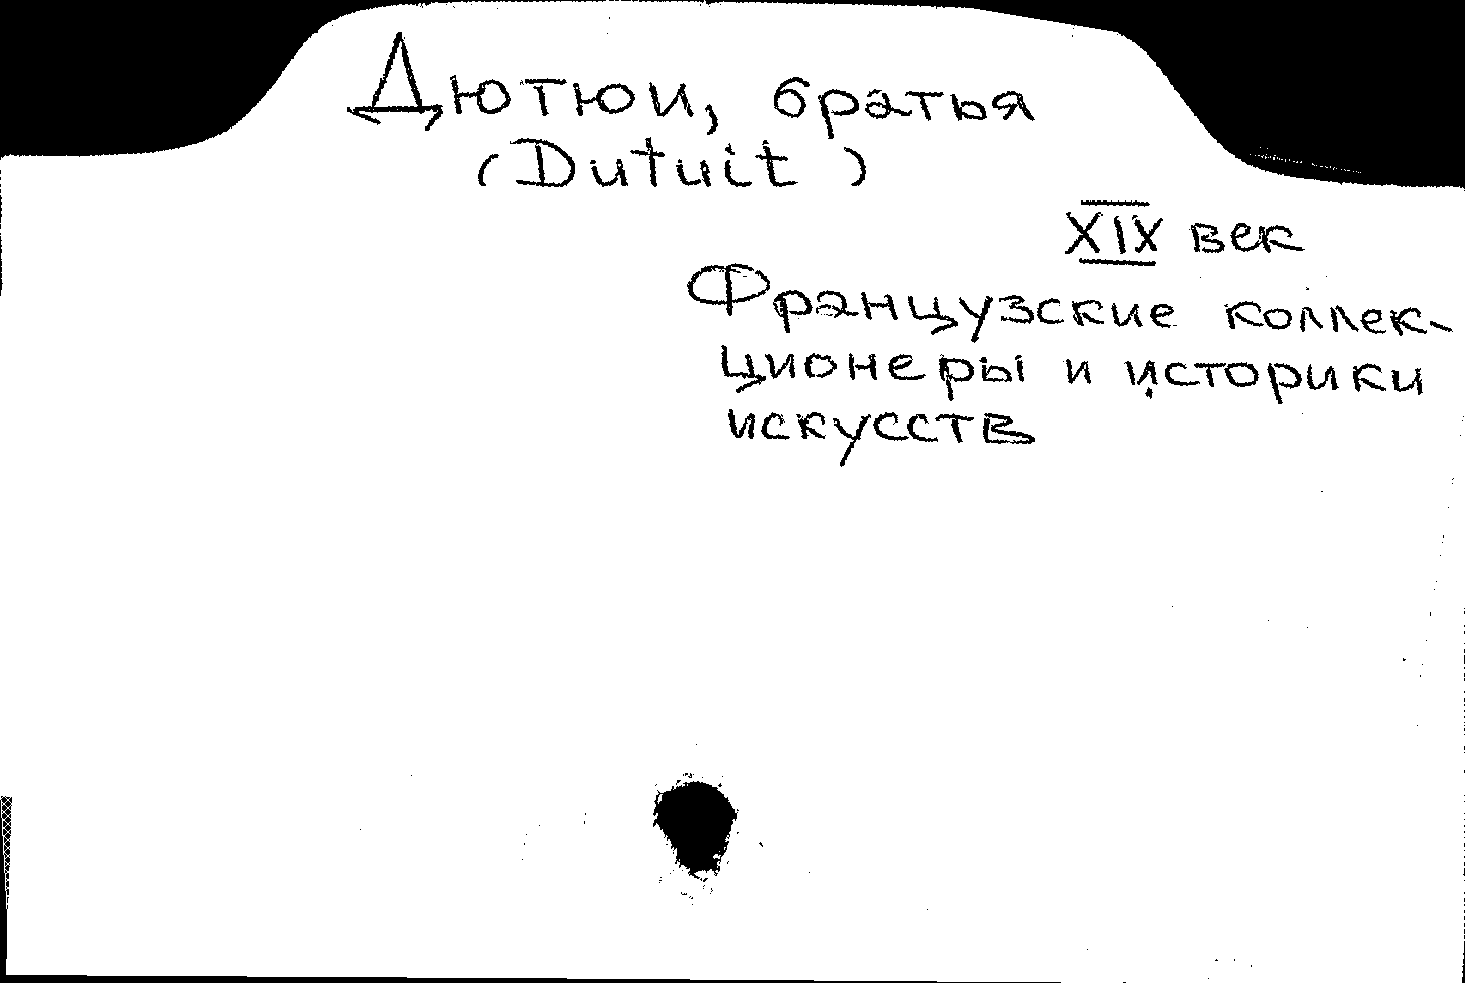 Дютюи, братья
(Dutuit)
XIX век
Французские коллек-
ционеры и историки
искусств